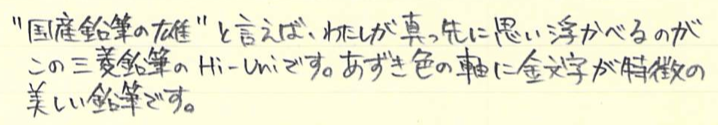 "国産鉛筆の雄"と言えば、わたしが真っ先に思い浮かべるのが
この三菱鉛筆のHi-Uniです。あずき色の軸に金文字が特徴の
美しい鉛筆です。